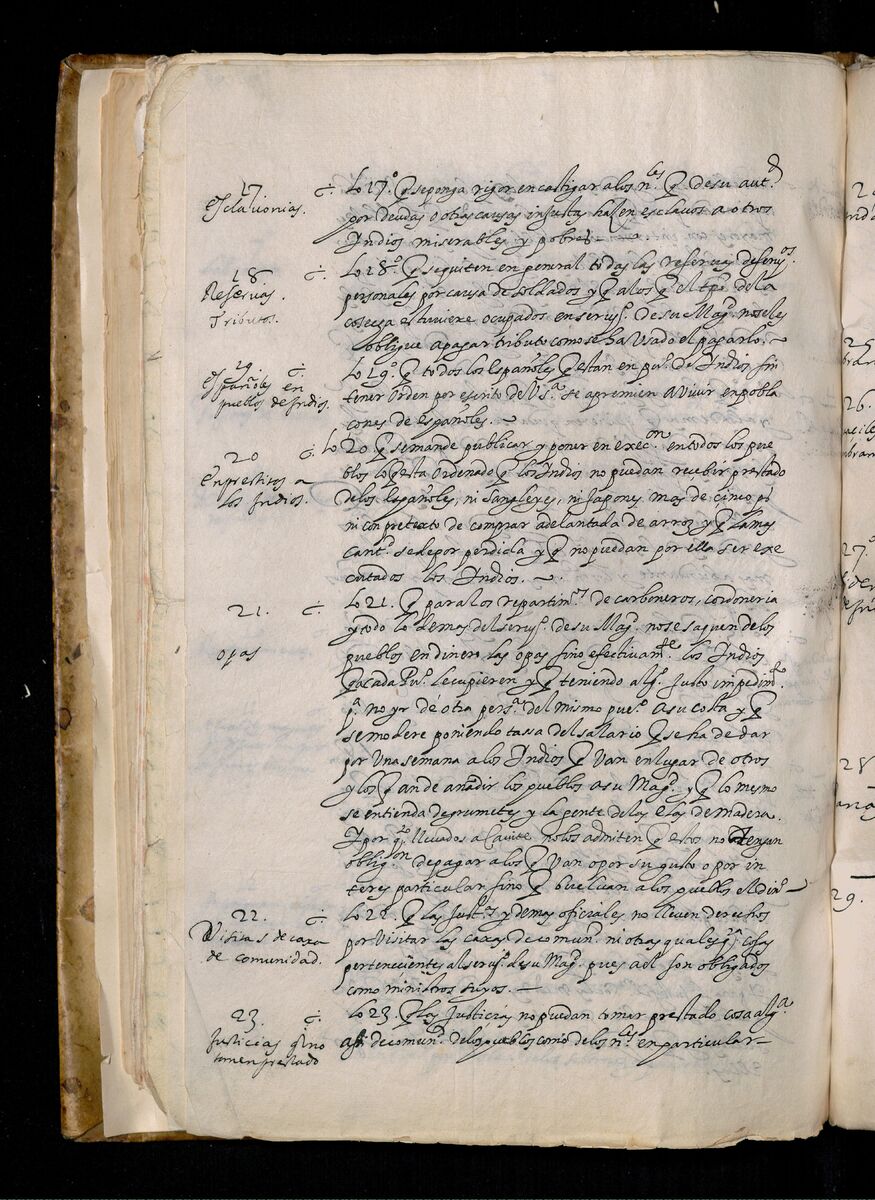 17
esclavonias.
Lo 17º q̃ seponja rigor en castigar alos n.les q̃ desu autd.
por deudas o otras causas injustas hazen esclavos a otros
Indios miserables y pobres
18
Reseruas.
Tributos.
Lo 18º. q̃ sequiten en general todas las reseruas deseruj.os
personales por causa de soldados y q̃ alos q̃ el tpo. dela
cosecha estuuiere ocupados en seruj.º de su Mag.d noseles
oblique apagar tributo como se ha Usado el pagarlo.
españoles en
pueblos de Indios.
Lo 19º. q̃ todos los Españoles q̃ estan en pu.º de Indios sin
tener orden por escrito de Vs.ª se apremien a Viuir en pobla
ciones de españoles.
20
Enprestitos a
los Indios.
Lo 20 q̃ semande publicar y poner en exec.on en todos los pue
blos lo q̃ esta ordenado q̃ los Indios no puedan recebir prestado
delos Españoles, ni Sangleyes, ni Japones mas de cinco ps
ni con pretexto de comprar adelantada de arroz y q̃ lamas
cant.d se de por perdida y q̃ no puedan por ella ser exe
cutados los Indios.
21.
opas
Lo 21. q̃ para los repartim.tos de carboneros, cordoneria
y todo lo demas del seruj.º de su Mag.d no se saquen delos
pueblos en dinero las opas sino efectiuam.te los Indios
q̃ acada Pu.º lecupieren y q̃ teniendo alg.º justo impedim.to
p.ª no yr dé otra pers.ª del mismo pue.º asu costa y q̃
semodere poniendo tassa del salario q̃ se ha de dar
por Una semana a los Indios q̃ Van en lugar de otros
y los q̃ an de añadir los pueblos a su Mag.d y q̃ lo mesmo
se entienda de grumetes y la gente de las de madera.
I por q̃ lleuados a Cauite nolos admiten q̃ estos no tengan
oblig.on depagar a los q̃ Van o por su gusto o por in
teres particular sino q̃ bueluan a los pueblos el din.º
22.
Visitas de caxa
de comunidad.
Lo 22. q̃ las Just.as y demas oficiales no lleuen derechos
por Visitar las caxas de comun.d ni otras qualesq.ª cosas
pertenecientes al seruj.º de su Mag.d pues asi son obligados
como ministros suyos.
23
Justicias q̃ no
tomen prestado
Lo 23. q̃ las Justicias no puedan tomar prestado cosa alg.ª
asi de comun.d delos pueblos como delos n.les en particular